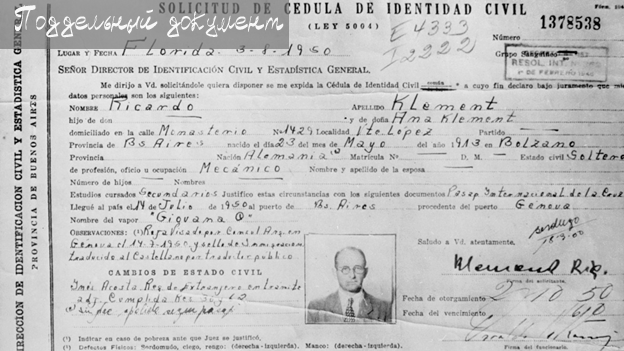 Поддельный документ
SOLICITUD DE CEDULA DE IDENTIDAD CIVIL
(LEY 5004)
Número
1378538
E 4333
I 2222
LUGAR Y FECHA Florida 3-8-1950
Grupo
RESOL.
SEÑOR DIRECTOR DE IDENTIFICACIÓN CIVIL Y ESTADÍSTICA GENERAL.
Me dirijo a Vd. solicitándole quiera disponer se me expida la Cédula de Identidad Civil a cuyo fin declaro bajo juramento que mis
datos personales son los siguientes:
NOMBRE Ricardo APELLIDO Klement
hijo de don y de doña Ana Klement
domiciliado en la calle Monasterio Nº 1429 Localidad Vte. López Partido
Provincia de Bs. Aires nacido el día 23 del mes de Mayo del año 1913 en Bolzano
Provincia Nación Alemania Matrícula Nº D. M. Estado civil Soltero
de profesión, oficio u ocupación Mecánico Nombre y apellido de la esposa
Número de hijos Nombres
Estudios cursados Secundarios Justifico estas circunstancias con los siguientes documentos Pasap. Internacional de la Cruz
Llegué al país el 14 de Julio de 1950 al puerto de Bs. Aires procedente del puerto Genova
Nombre del vapor "Giovana C"
OBSERVACIONES: (1) por Consul Arg. en
Genova el 14-7-1950 y sello de Inmigracion
traducido al Castellano por traductor publico
Saludo a Vd. atentamente.
Klement Ric.
Firma del solicitante.
CAMBIOS DE ESTADO CIVIL
Fecha de otorgamiento 2-10 50
Fecha del vencimiento
Firma del funcionario.
(1) Indicar en caso de pobreza ante que Juez se justificó,
(2) Defectos Físicos: Sordomudo, ciego, rengo: (derecha-izquierda). Manco: (derecha-izquierda).
DIRECCION DE IDENTIFICACION CIVIL Y ESTADISTICA GENERAL
PROVINCIA DE BUENOS AIRES